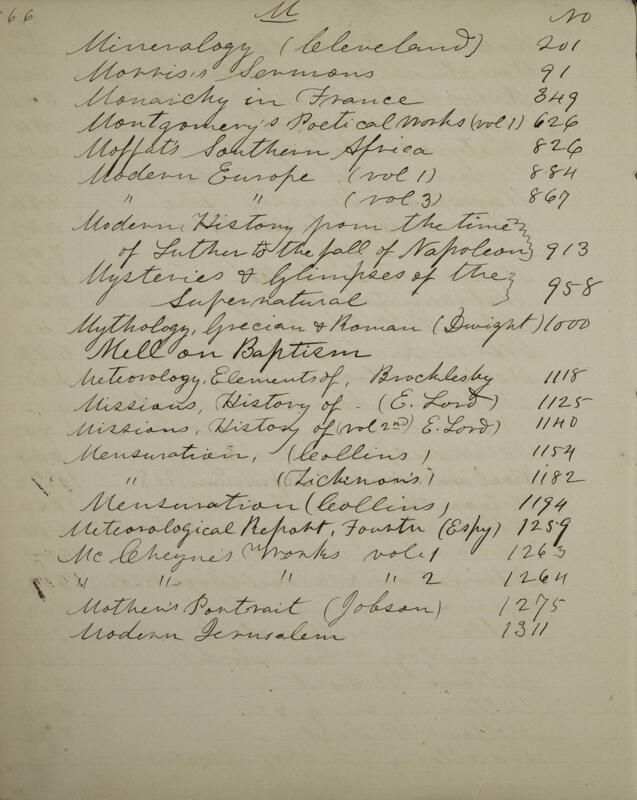 66 M No
Mineralogy (Cleveland) 201
Morris's Sermons 91
Monarchy in France 349
Montgomery's Poetical Works (vol 1) 626
Moffat's Southern Africa 826
Modern Europe (vol 1) 884
" " (vol 3) 867
Modern History from the time
of Luther to the fall of Napoleon 913
Mysteries & Glimpses of the
Supernatural 958
Mythology, Grecian & Roman (Dwight) 1000
Mell on Baptism
Meteorology, Elements of, Brocklesby 1118
Missions, History of (E. Lord) 1125
Missions, History of (vol 2nd) E. Lord) 1140
Mensuration, (Collins) 1154
" (Dickinson's) 1182
Mensuration (Collins) 1194
Meteorological Report, Fourth (Espy) 1259
Mc Cheyne's Works vol. 1 1263
" " " " 2 1264
Mother's Portrait (Jobson) 1275
Modern Jerusalem 1311